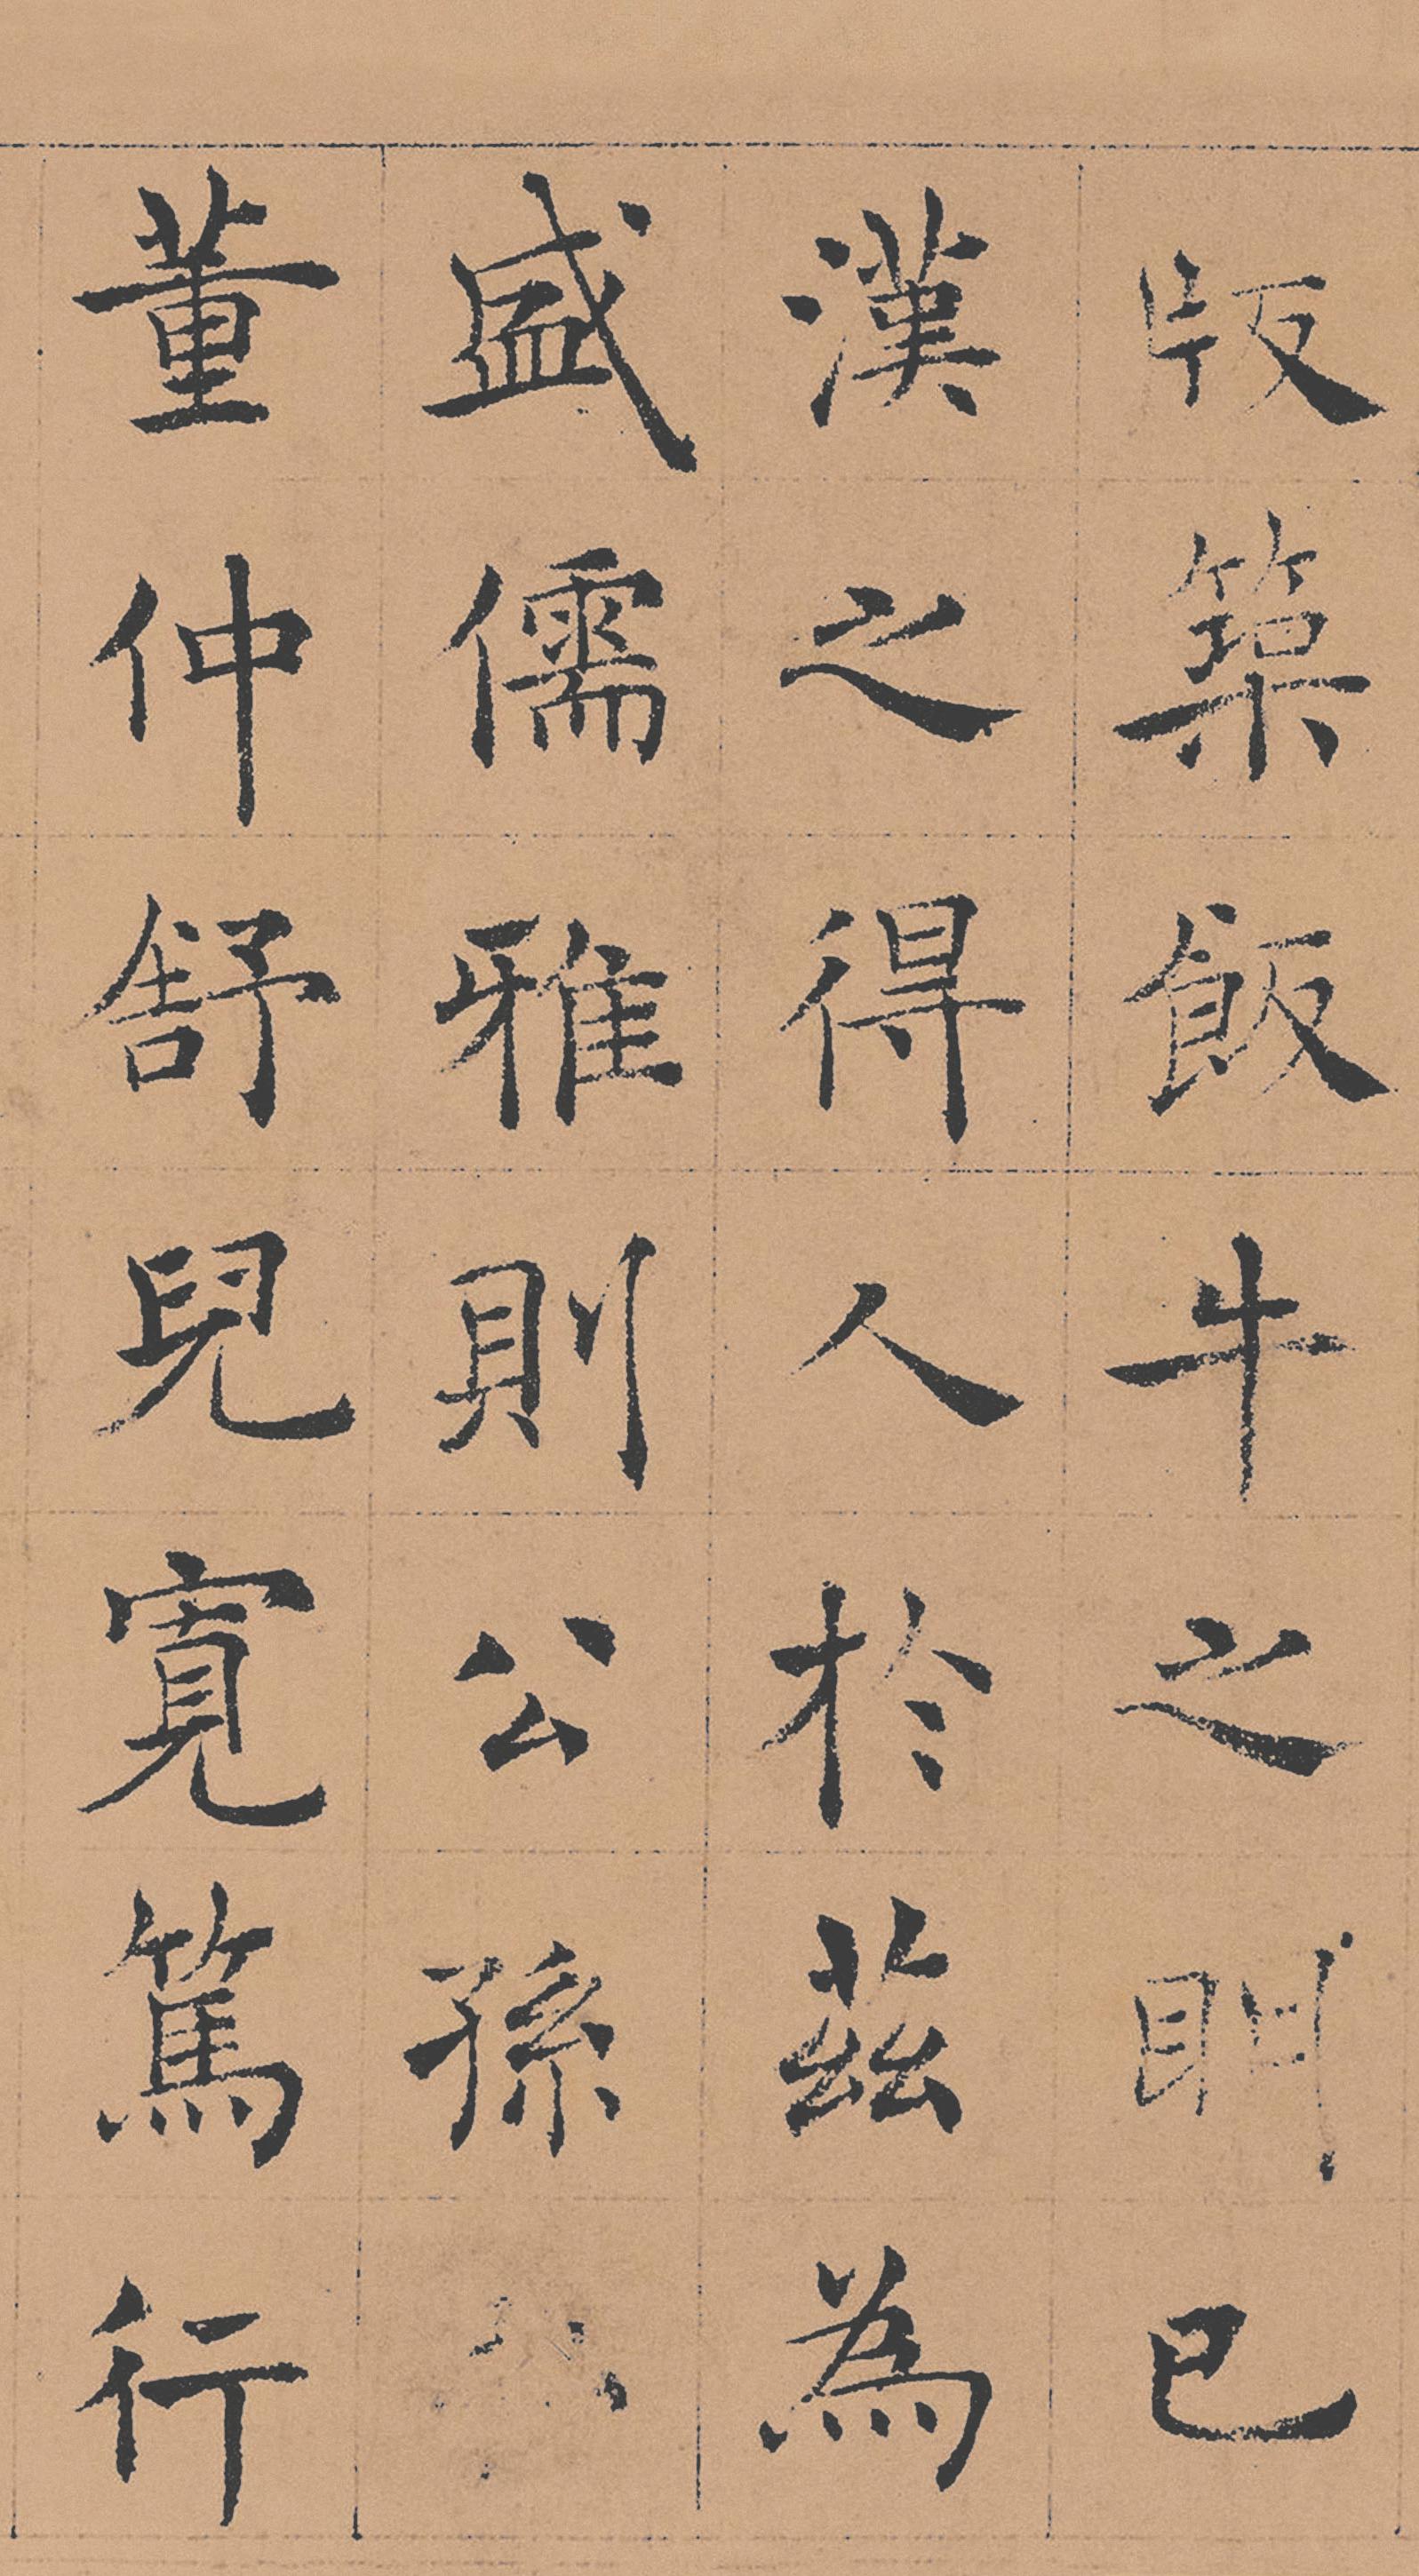 版築飯牛之朋已
漢之得人於茲為
盛儒雅則公孫
董仲舒兒寬篤行